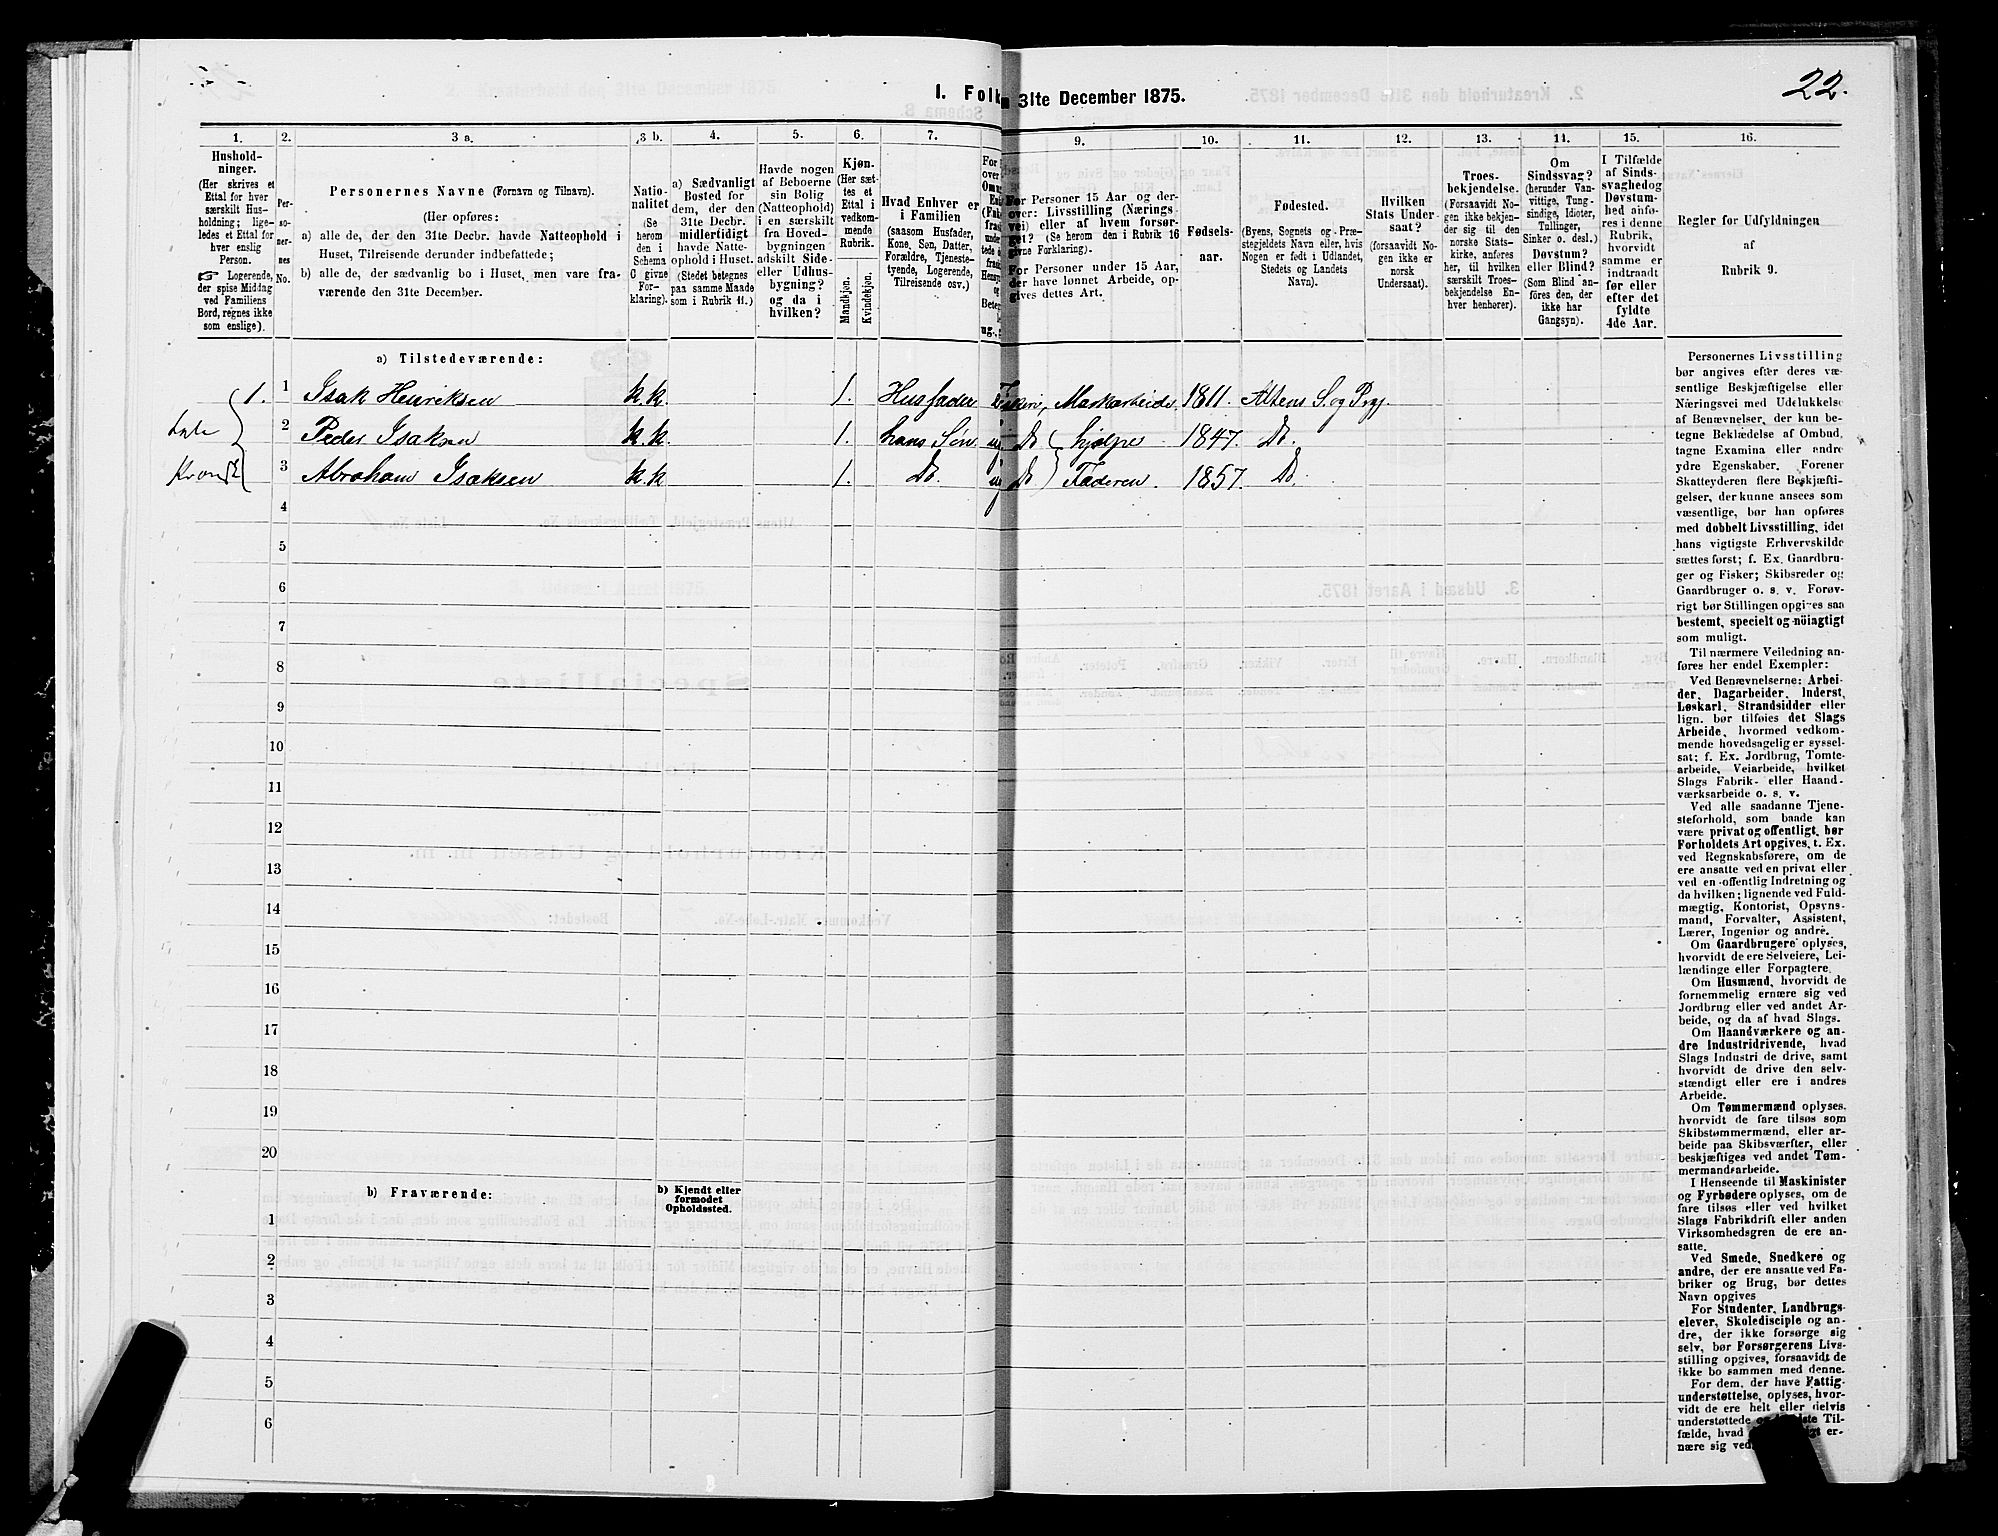 22.
I. Folk
31te December 1875.
1. 2. 3 a. 3 b. 4. 5. 6. 7. 9. 10. 11. 12. 13. 14. 15. 16.
Hushold-
ninger.
(Her skrives et
Ettal for hver
særskilt Hus-
holdning; lige-
ledes et Ettal for
hver enslig
Person.
☞ Logerende,
der spise Middag
ved Familiens
Bord, regnes ikke
som enslige).
Per-
so-
ner-
nes
No.
Personernes Navne (Fornavn og Tilnavn).
(Her opføres:
a) alle de, der den 31te Decbr. havde Natteophold i
Huset, Tilreisende derunder indbefattede;
b) alle de, der sædvanlig bo i Huset, men vare fra-
værende den 31te December.
Natio-
nalitet
(Se
herom
den i
Schema
C givne
For-
klaring).
a) Sædvanligt
Bosted for
dem, der den
31te Decbr.
midlertidigt
havde Natte-
ophold i Huset.
(Stedet betegnes
paa samme Maade
som i Rubrik 11.)
Havde nogen
af Beboerne
sin Bolig
(Natteophold)
i en særskilt
fra Hoved-
bygningen
adskilt Side-
eller Udhus-
bygning?
og da i
hvilken?
Kjøn.
(Her sæt-
tes et
Ettal i
vedkom-
mende
Rubrik.
Mandkjøn.
Kvindekjøn.
Hvad Enhver er
i Familien
(saasom Husfader,
Kone, Søn, Datter,
Forældre, Tjeneste-
tyende, Logerende,
Tilreisende osv.)
For Personer 15 Aar og der-
over: Livsstilling (Nærings-
vei) eller af hvem forsør-
get? (Se herom den i Rubrik 16
givne Forklaring).
For Personer under 15 Aar,
der have lønnet Arbeide, op-
gives dettes Art.
Fødsels-
aar.
Fødested.
(Byens, Sognets og Præ-
stegjeldets Navn eller, hvis
Nogen er født i Udlandet,
Stedets og Landets
Navn).
Hvilken
Stats Under-
saat?
(forsaavidt No-
gen ikke er
norsk
Undersaat).
Troes-
bekjendelse.
(Forsaavidt No-
gen ikke bekjen-
der sig til den
norske Stats-
kirke, anføres
her, til hvilken
særskilt Troes-
bekjendelse En-
hver henhører).
Om
Sindssvag?
(herunder Van-
vittige, Tung-
sindige, Idioter,
Tullinger,
Sinker o. desl.)
Døvstum?
eller Blind?
(Som Blind an-
føres den, der
ikke har
Gangsyn).
I Tilfælde
af Sinds-
svaghed og
Døvstum-
hed anfø-
res i denne
Rubrik,
hvorvidt
samme er
indtraadt
før eller
efter det
fyldte
4de Aar.
Regler for Udfyldningen
af
Rubrik 9.
a) Tilstedeværende:
1. 1 Isak Henriksen k.k. 1. Husfader Markarbeide 1811. Altens S. og Prgj.
2 Peder Isaksen k.k. 1. hans Søn ug. Do hjælpe 1847. Do.
3 Abraham Isaksen k.k 1. Do. ug Do Faderen. 1857. Do.
4
5
6
7
8
9
10
11
12
13
14
15
16
17
18
19
20
b) Fraværende:
b) Kjendt eller
formodet
Opholdssted.
1
2
3
4
5
6
Personernes Livsstilling
bør angives efter deres væ-
sentlige Beskjæftigelse eller
Næringsvei med Udelukkelse
af Benævnelser, der kun be-
tegne Beklædelse af Ombud,
tagne Examina eller andre
ydre Egenskaber. Forener
Skatteyderen flere Beskjæfti-
gelser, der kunne ansees som
væsentlige, bør han opføres
med dobbelt Livsstilling, idet
hans vigtigste Erhvervskilde
sættes først; f. Ex. Gaardbru-
ger og Fisker; Skibsreder og
Gaardbruger o. s. v. Forøv-
rigt bør Stillingen opgives saa
bestemt, specielt og nöiagtigt
som muligt.
Til nærmere Veiledning an-
føres her endel Exempler:
Ved Benævnelserne: Arbei-
der, Dagarbeider, Inderst,
Løskarl, Strandsidder eller
lign. bør tilføies det Slags
Arbeide, hvormed vedkom-
mende hovedsagelig er syssel-
sat; f. Ex. Jordbrug, Tomte-
arbeide, Veiarbeide, hvilket
Slags Fabrik- eller Haand-
værksarbeide o. s. v.
Ved alle saadanne Tjene-
steforhold, som baade kan
være privat og offentligt, bør
Forholdets Art opgives, t. Ex.
ved Regnskabsførere, om de
ere ansatte ved en privat eller
ved en offentlig Indretning og
da hvilken; lignende ved Fuld-
mægtig, Kontorist, Opsyns-
mand, Forvalter, Assistent,
Lærer, Ingeniør og andre.
Om Gaardbrugere oplyses,
hvorvidt de ere Selveiere, Lei-
lændinge eller Forpagtere.
Om Husmænd, hvorvidt de
fornemmelig ernære sig ved
Jordbrug eller ved andet Ar-
beide, og da af hvad Slags.
Om Haandværkere og an-
dre Industridrivende, hvad
Slags Industri de drive, samt
hvorvidt de drive den selv-
stændigt eller ere i andres
Arbeide.
Om Tømmermænd oplyses,
hvorvidt de fare tilsøs som
Skibstømmermænd, eller ar-
beide paa Skibsværfter, eller
beskjæftiges ved andet Tøm-
mermandsarbeide.
I Henseende til Maskinister
og Fyrbødere oplyses, om de
fare tilsøs eller ved hvilket
Slags Fabrikdrift eller anden
Virksomhedsgren de ere an-
satte.
Ved Smede, Snedkere og
andre, der ere ansatte ved Fa-
briker og Brug, bør dettes
Navn opgives
For Studenter, Landbrugs-
elever, Skoledisciple og an-
dre, der ikke forsørge sig
selv, bør Forsørgerens Livs-
stilling opgives, forsaavidt de
ikke bo sammen med denne.
For dem, der have Fattig-
understøttelse, oplyses, hvor-
vidt de ere helt eller delvis
understøttede
fælde, hvad er-
nære sig ved